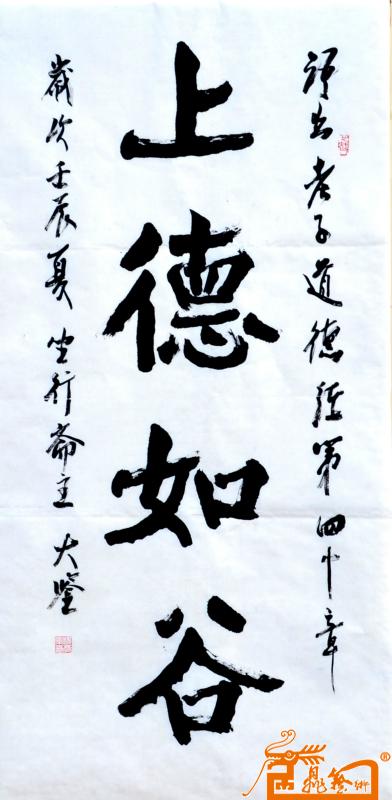 语出老子道德经第四十章
上德如谷
岁次壬辰夏坐行斋主大鉴